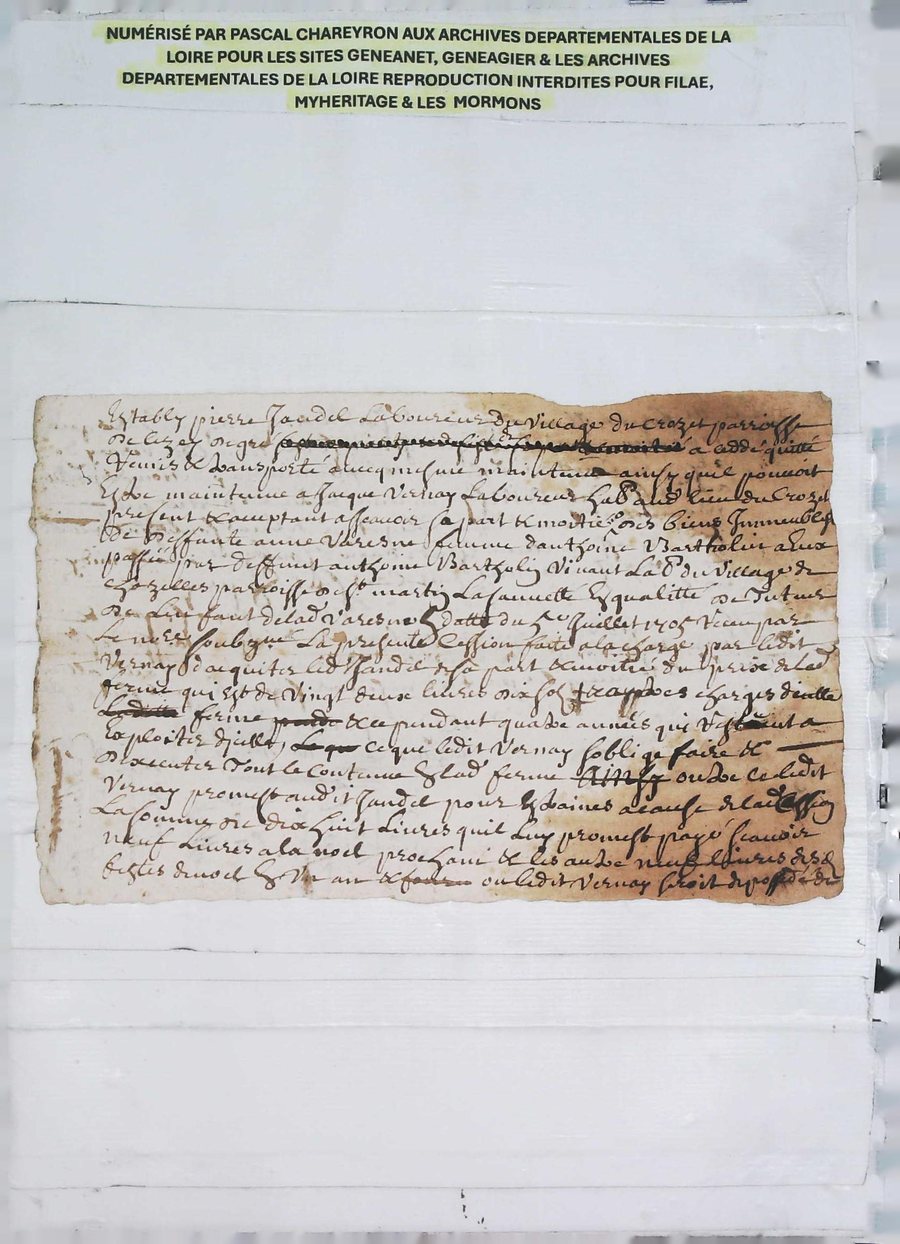 NUMÉRISÉ PAR PASCAL CHAREYRON AUX ARCHIVES DEPARTEMENTALES DE LA
LOIRE POUR LES SITES GENEANET, GENEAGIER & LES ARCHIVES
DEPARTEMENTALES DE LA LOIRE REPRODUCTION INTERDITES POUR FILAE,
MYHERITAGE & LES MORMONS
Estably pierre Jandel Laboureur du village du Crozet parroisse
de de gre a ceddé quitté
Remis & transporté avecq mesme maintenue ainsy quil pouvoit
Estre maintenue a Jacque Vernay Laboureur dud lieu du Crozet
present & acceptant assavoir sa part & moitié des biens Immeubles
de deffunte anne Varesne femme danthoine Bartholin a Eux
passée par deffunt anthoine Bartholin vivant Lab du village de
parroisse de st martin La Sauvetté En qualitté de Tuteur
de delad Varesne En datte du Juillet par
Le no.re soubz.né La presente Cession faite a la charge par ledit
Vernay dacquiter led Jandel de sa part & moitié du prix de lad
ferme qui Est de Vingt deux livres dix sol charges dicelle
ladite ferme pendant quatre années qui
Exploiter dicelle, ce que ledit Vernay soblige faire &
Executer Tout le contenue En lad ferme outre ce ledit
Vernay promest audit Jandel pour Estraines a cause de lad Cession
La somme de dix huit Livres quil Luy promest payé scavoir
neuf Livres a la noel prochain & les autre neuf livres
de noel En un an & ou ledit Vernay seroit depossedé du